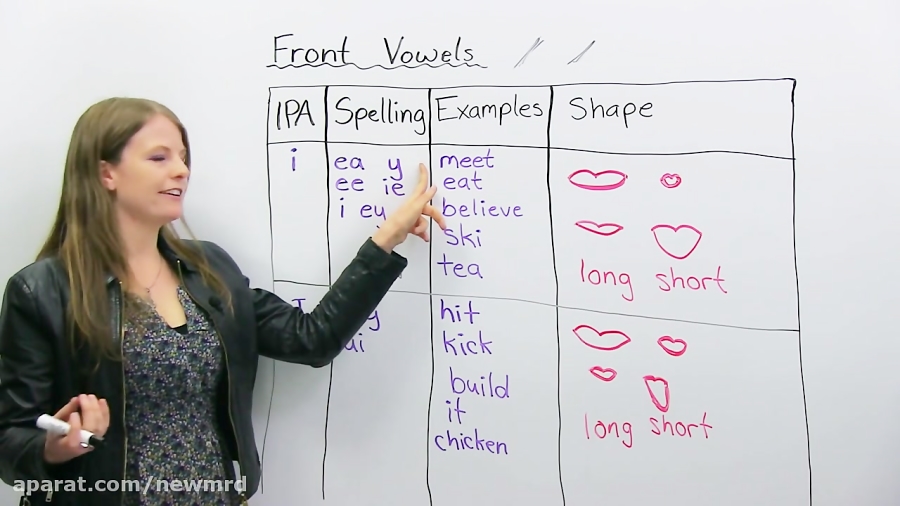 Front Vowels / /
IPA Spelling Examples Shape
i ea y meet
ee ie eat
i ey believe
ski
tea
long short
I y hit
ui kick
build
it
chicken
long short
aparat.com/newmrd